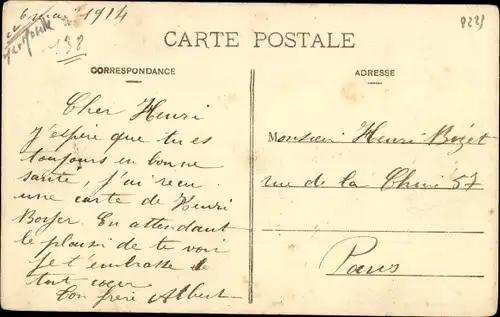 6 mai 1914
138
CARTE POSTALE
CORRESPONDANCE
ADRESSE
Cher Henri
J'espère que tu es
toujours en bonne
santé, j'ai reçu
une carte de Henri
Boyer. En attendant
le plaisir de te voir
je t'embrasse de
tout coeur
Ton frère Albert
Monsieur Henri Bizet
rue de la Chine 57
Paris